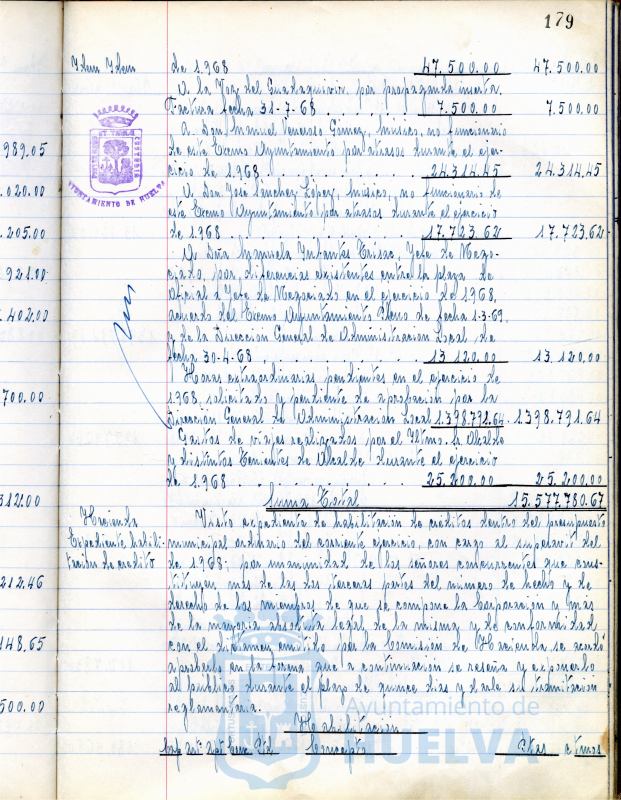 179
Idem Idem
de 1.968 47.500.00 47.500.00
A la Voz del Guadalquivir, por propaganda inserta.
Factura fecha 31-7-68 7.500.00 7.500.00
A Don Manuel Gómez, músico, no funcionario
de este Excmo Ayuntamiento por atrasos durante el ejer-
cicio de 1.968. 24.314.45 24.314.45
A Don José Sánchez López, músico, no funcionario de
este Excmo Ayuntamiento por atrasos durante el ejercicio
de 1.968 17.723.62 17.723.62
A Doña Manuela Infantes, Jefe de Nego-
ciado, por diferencias existentes entre la plaza de
Oficial a Jefe de Negociado en el ejercicio de 1.968,
acuerdo del Excmo Ayuntamiento Pleno de fecha 1-3-69.
y de la Dirección General de Administración Local de
fecha 30-4-68 13.120.00 13.120.00
Horas extraordinarias pendientes en el ejercicio de
1.968 solicitado y pendiente de aprobación por la
Dirección General de Administración Local 1.398.791.64 1.398.791.64
Gastos de viajes realizados por el Iltmo. Sr. Alcalde
y distintos Tenientes de Alcalde durante el ejercicio
de 1.968 25.200.00 25.200.00
Suma Total 15.577.780.67
Hacienda
Expediente habili-
tación de credito
Visto expediente de habilitación de créditos dentro del presupuesto
municipal ordinario del corriente ejercicio, con cargo al superavit del
de 1.968; por unanimidad de los señores concurrentes que cons-
tituyen más de las dos terceras partes del número de hecho y de
derecho de los miembros de que se compone la Corporación y más
de la mayoría absoluta legal de la misma y de conformidad
con el dictamen emitido por la Comisión de Hacienda se acordó
aprobarlo en la forma que a continuación se reseña y exponerlo
al público durante el plazo de quince dias y darle su tramitación
reglamentaria.
Habilitación
Cap. art. Concepto Ptas ctmos
989.05
.020.00
.205.00
.921.00
.402.00
700.00
312.00
212.46
148.65
500.00
AYUNTAMIENTO DE HUELVA
Ayuntamiento de
HUELVA